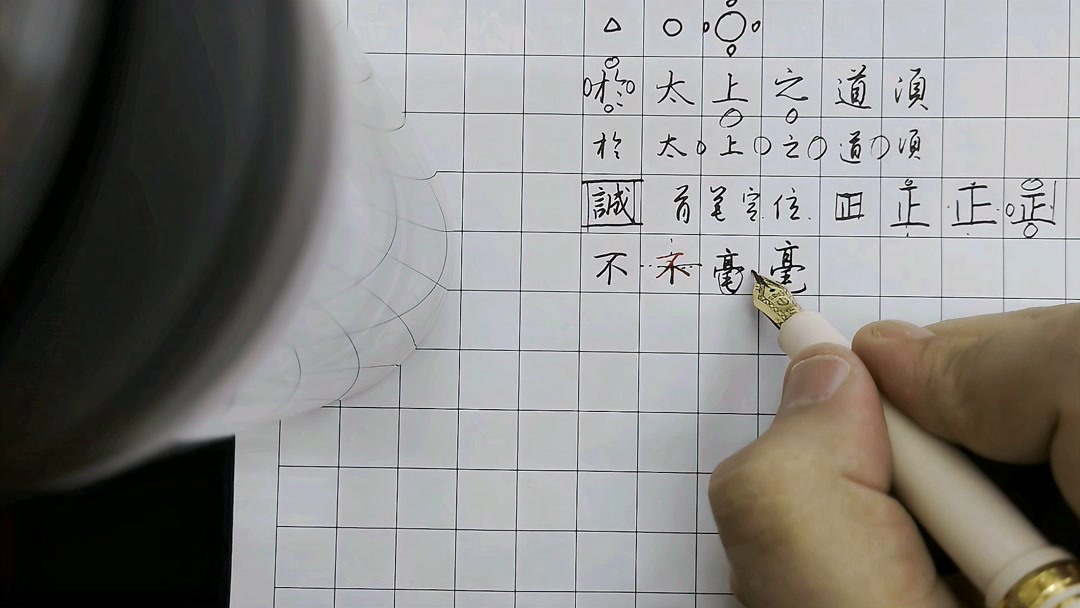 於太上之道須
於太上之道須
誠首筆字位正正正正
不不毫毫